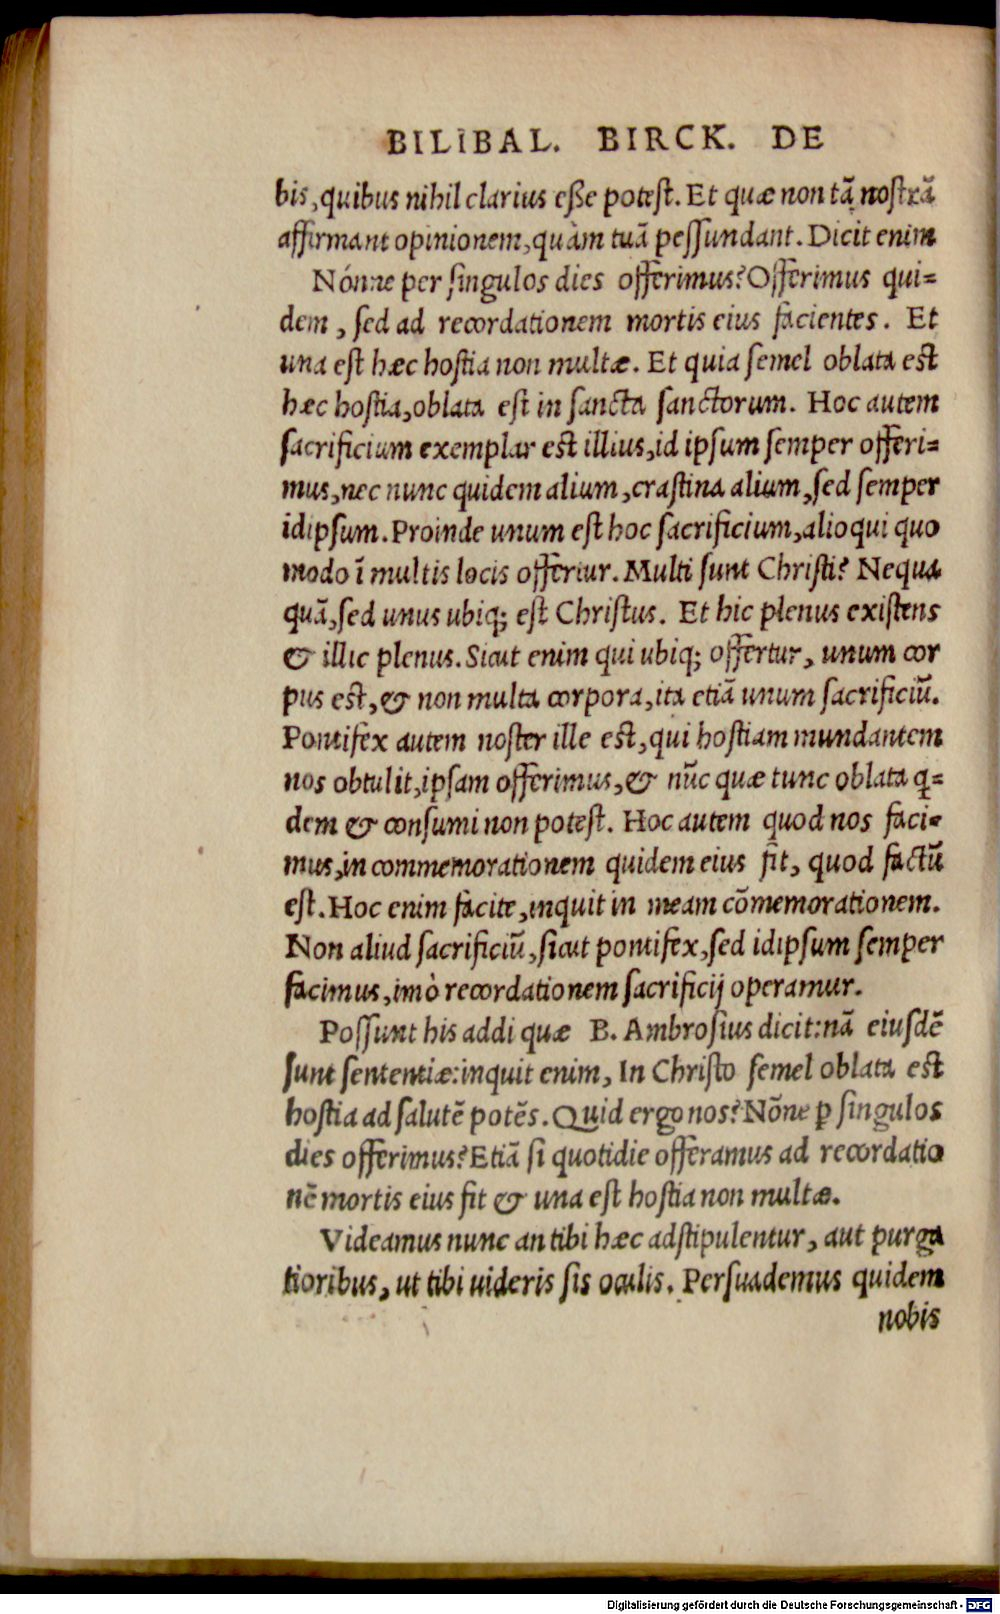 BILIBAL. BIRCK. DE
bis, quibus nihil clarius eſſe poteſt. Et quæ non tā noſtrā
affirmant opinionem, quàm tuā peſſundant. Dicit enim
Nónne per ſingulos dies offerimus? Offerimus qui=
dem, ſed ad recordationem mortis eius facientes. Et
una eſt hæc hoſtia non multæ. Et quia ſemel oblata eſt
hæc hoſtia, oblata eſt in ſancta ſanctorum. Hoc autem
ſacrificium exemplar eſt illius, id ipſum ſemper offeri=
mus, nec nunc quidem alium, craſtina alium, ſed ſemper
idipſum. Proinde unum eſt hoc ſacrificium, alioqui quo
modo ī multis locis offertur. Multi ſunt Chriſti? Nequa
quā, ſed unus ubiq; eſt Chriſtus. Et hic plenus exiſtens
& illic plenus. Sicut enim qui ubiq; offertur, unum cor
pus eſt, & non multa corpora, ita etiā unum ſacrificiū.
Pontifex autem noſter ille eſt, qui hoſtiam mundantem
nos obtulit, ipſam offerimus, & nūc quæ tunc oblata q̄=
dem & conſumi non poteſt. Hoc autem quod nos faci=
mus, in commemorationem quidem eius fit, quod factū
eſt. Hoc enim facite, inquit in meam cōmemorationem.
Non aliud ſacrificiū, ſicut pontifex, ſed idipſum ſemper
facimus, imò recordationem ſacrificij operamur.
Poſſunt his addi quæ B. Ambroſius dicit: nā eiuſdē
ſunt ſententiæ: inquit enim, In Chriſto ſemel oblata eſt
hoſtia ad ſalutē potēs. Quid ergo nos? Nōne ꝑ ſingulos
dies offerimus? Etiā ſi quotidie offeramus ad recordatio
nē mortis eius fit & una eſt hoſtia non multæ.
Videamus nunc an tibi hæc adſtipulentur, aut purga
tioribus, ut tibi uideris ſis oculis. Perſuademus quidem
nobis
Digitalisierung gefördert durch die Deutsche Forschungsgemeinschaft - DFG